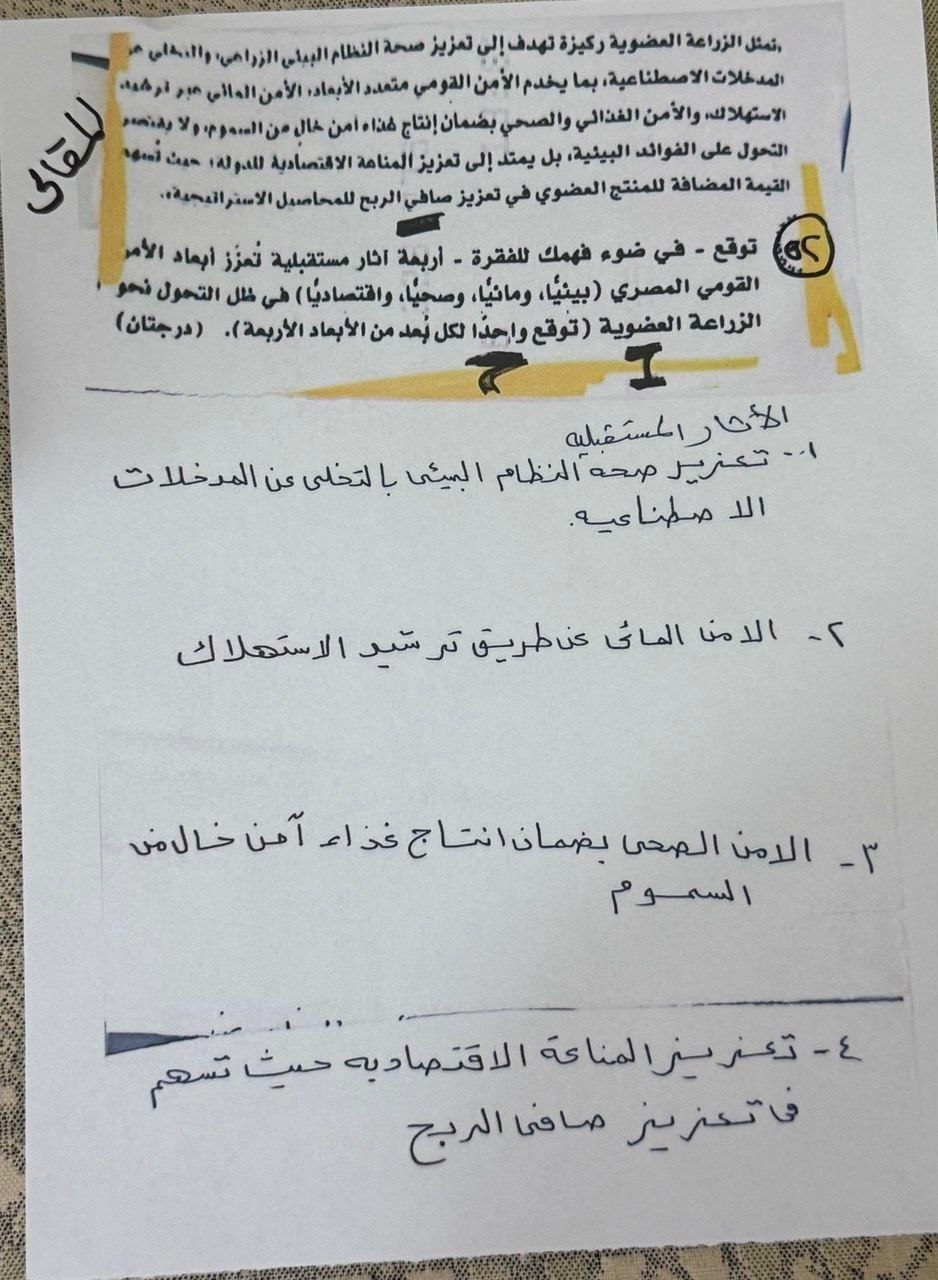 تمثل الزراعة العضوية ركيزة تهدف إلى تعزيز صحة النظام البيئي الزراعي، والتخلي عن
المدخلات الاصطناعية، بما يخدم الأمن القومي متعدد الأبعاد، الأمن المائي عبر ترشيد
الاستهلاك، والأمن الغذائي والصحي بضمان إنتاج غذاء آمن خالٍ من السموم، ولا يقتصر
التحول على الفوائد البيئية، بل يمتد إلى تعزيز المناعة الاقتصادية للدولة؛ حيث تسهم
القيمة المضافة للمنتج العضوي في تعزيز صافي الربح للمحاصيل الاستراتيجية.
للمقالى
٥٢
توقع - في ضوء فهمك للفقرة - أربعة آثار مستقبلية تُعزز أبعاد الأمن
القومي المصري (بيئيًا، ومائيًا، وصحيًا، واقتصاديًا) في ظل التحول نحو
الزراعة العضوية (توقع واحدًا لكل بُعد من الأبعاد الأربعة). (درجتان)
الأثار المستقبليه
١- تعزيز صحه النظام البيئى بالتخلى عن المدخلات
الاصطناعيه.
٢- الامن المائى عن طريق ترشيد الاستهلاك
٣- الامن الصحى بضمان انتاج غذاء آمن خال من
السموم
٤- تعزيز المناعة الاقتصاديه حيث تسهم
فى تعزيز صافى الربح